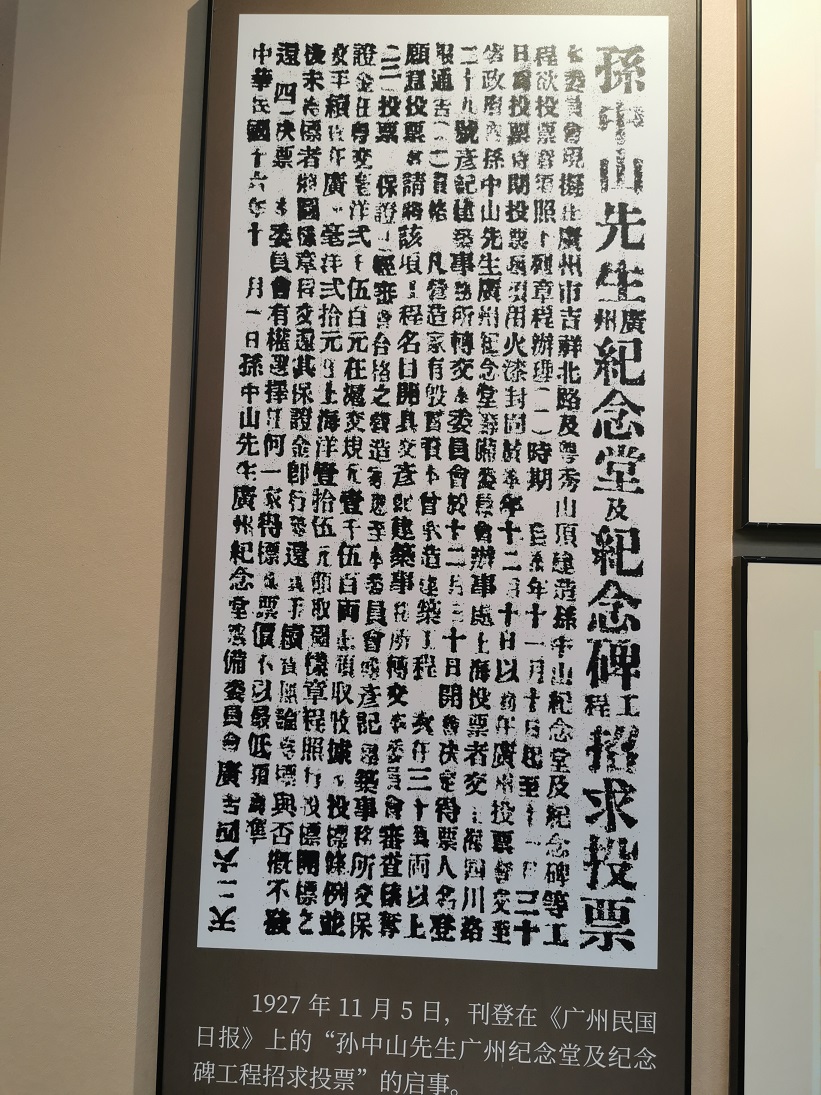 孫中山先生廣州紀念堂及紀念碑工程招求投票
本委員會現擬在廣州市吉祥北路及粵秀山頂建造孫中山紀念堂及紀念碑等工
程欲投票者須照下列章程辦理(一)時期 年十一月十日起至十一月三十
日爲投票時期投票須用火漆封固於本年十二月十日以前在廣州投票者交至
省政府內孫中山先生廣州紀念堂籌備委員會辦事處上海投票者交上海四川路
二十九號彥記建築事務所轉交本委員會於十二月三十日開會决定得票人名登
報通告(二)資格 凡營造家有殷實資本曾承造建築工程 在三十萬兩以上
願意投票者請將該項工程名目開具交彥記建築事務所轉交本委員會審查後奪
(三)投票 保證 經審查合格之營造家應至本委員會或彥記建築事務所交保
證金在粵交毫洋弍千伍百元在滬交規元壹千伍百両領取收據投標條例並
交手續費在廣州毫洋弍拾元上海洋壹拾伍元領取圖樣章程照行投標開標之
後未得標者將圖樣章程交還其保證金即行發還手續費無論得標與否概不發
還 (四)决票 本委員會有權選擇任何一家得標票價不以最低爲準
中華民國十六年十一月一日孫中山先生廣州紀念堂籌備委員會 廣
1927 年 11 月 5 日，刊登在《广州民国
日报》上的“孙中山先生广州纪念堂及纪念
碑工程招求投票”的启事。